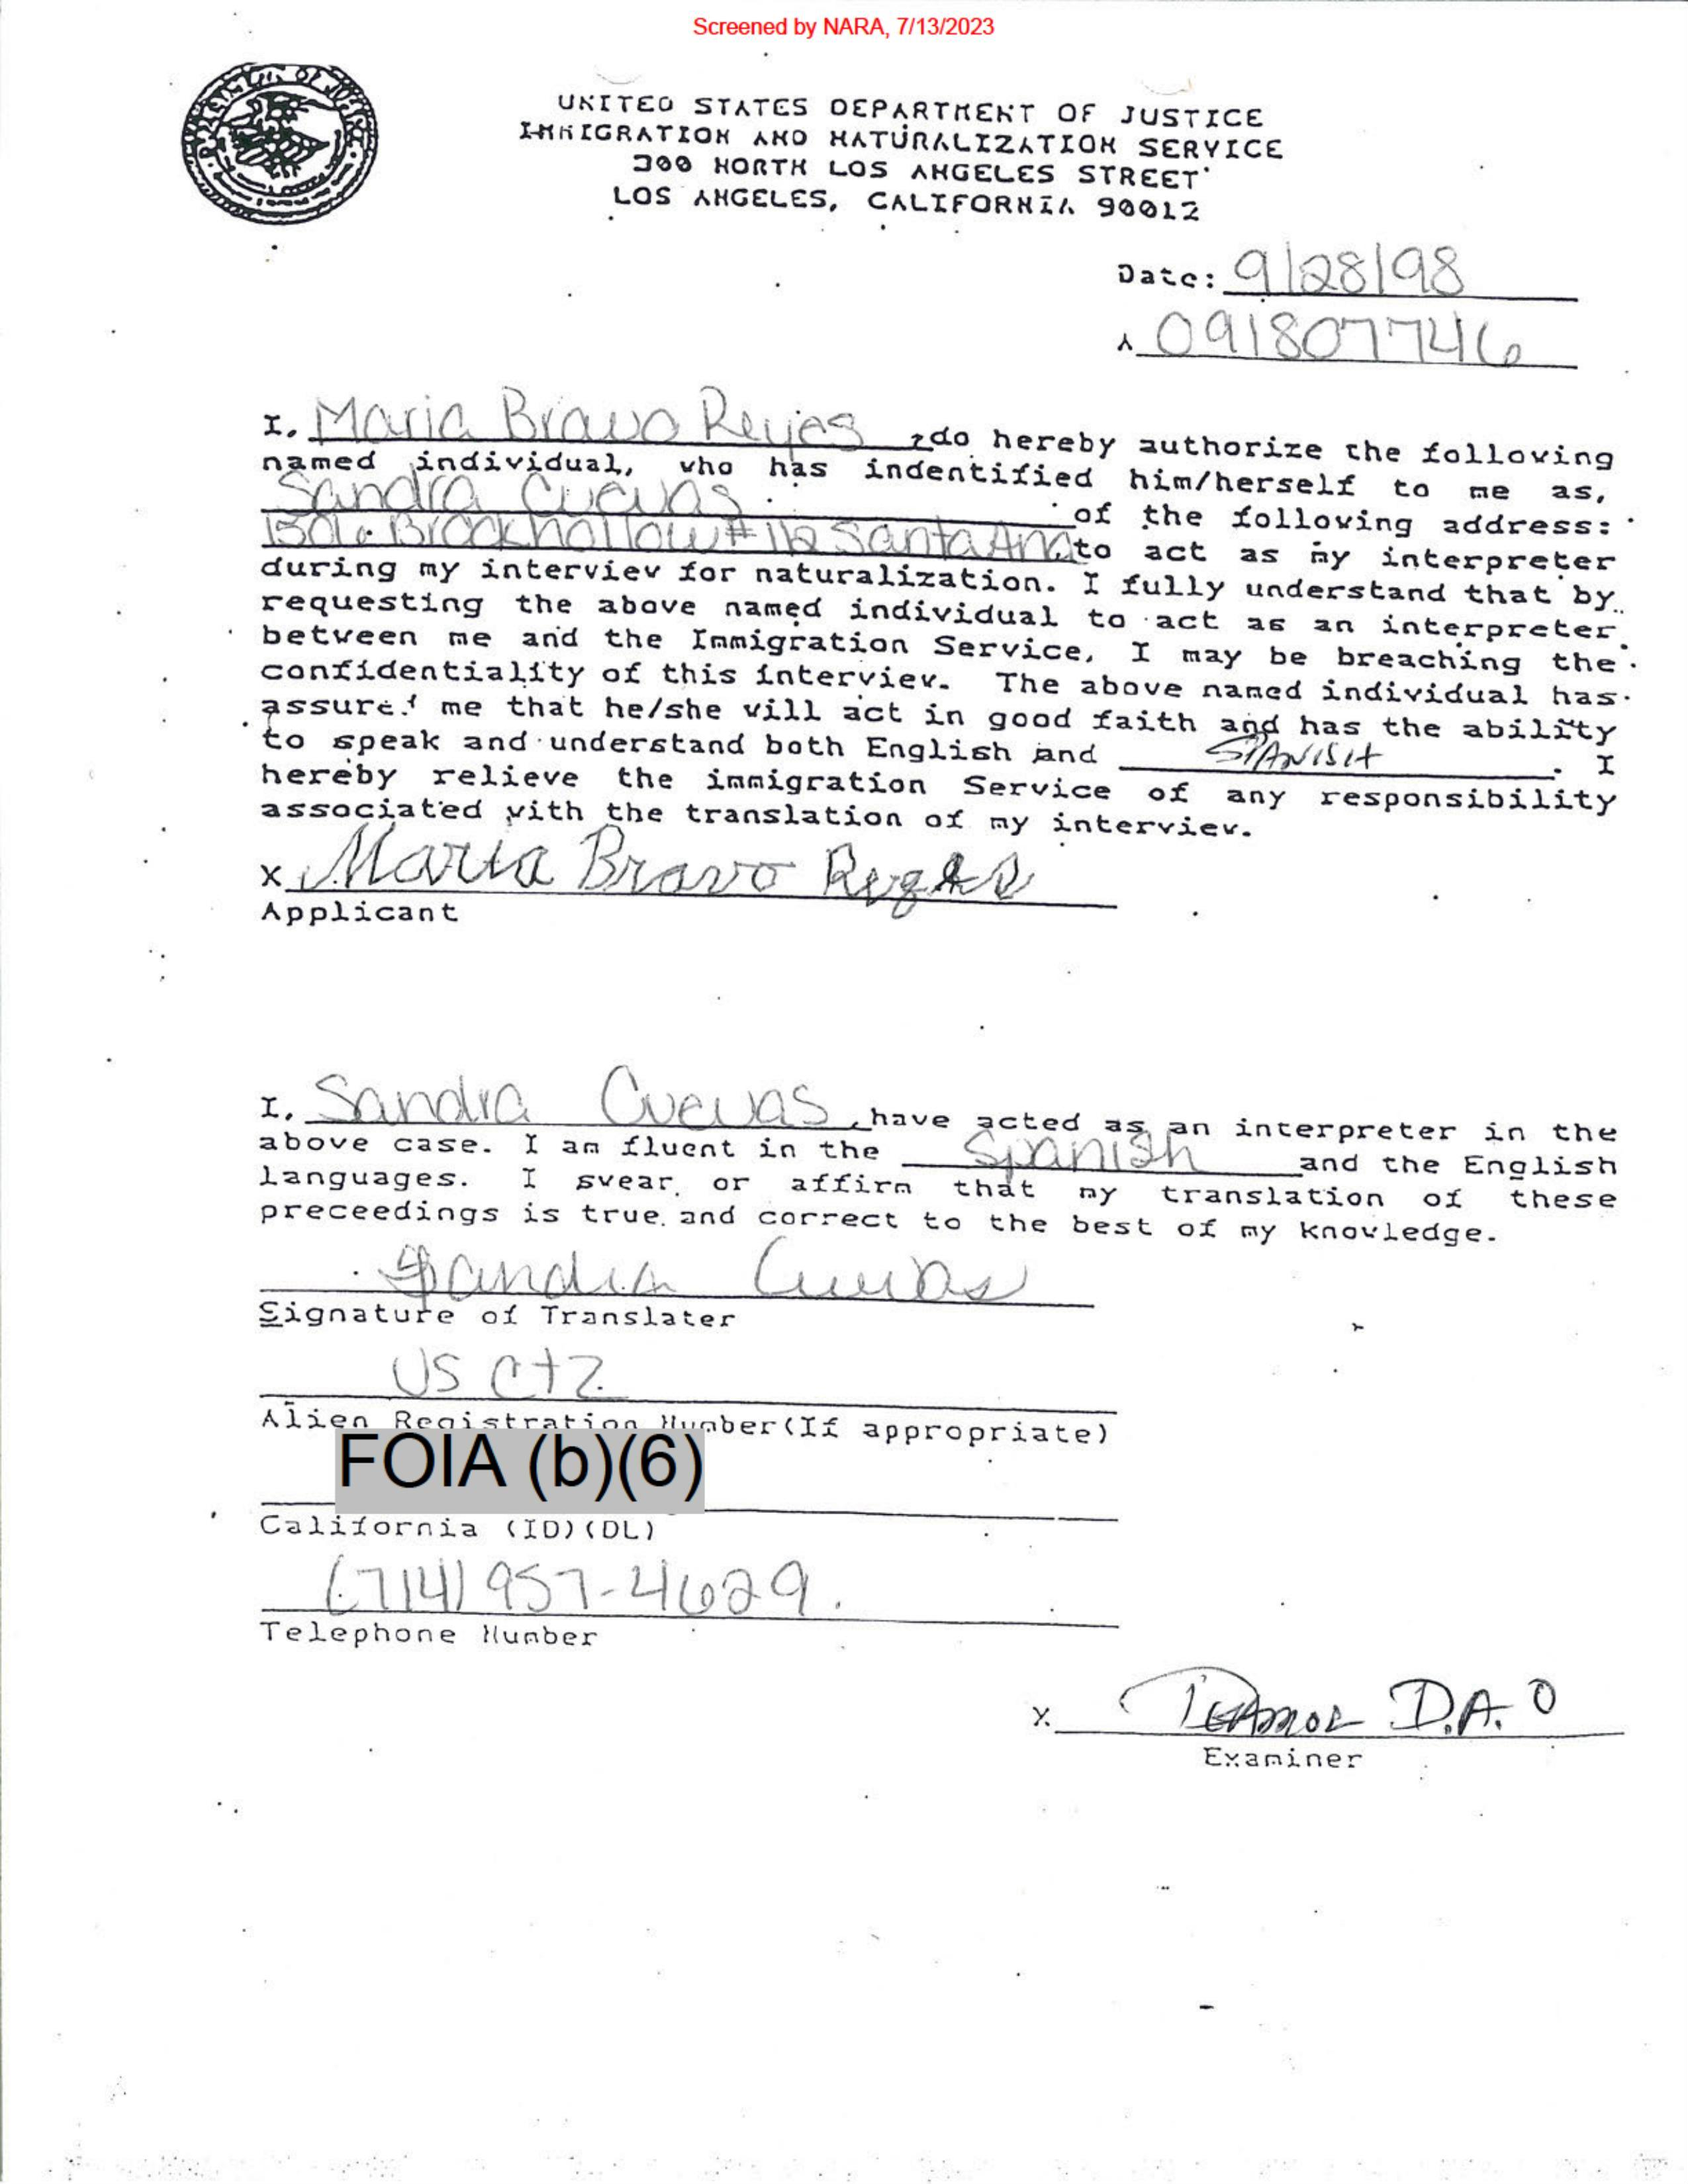 Screened by NARA, 7/13/2023
UNITED STATES DEPARTMENT OF JUSTICE
IMMIGRATION AND NATURALIZATION SERVICE
300 NORTH LOS ANGELES STREET
LOS ANGELES, CALIFORNIA 90012
Date: 9/28/98
A 091807746
I, Maria Bravo Reyes, do hereby authorize the following
named individual, who has indentified him/herself to me as,
Sandra Cuevas of the following address:
Brookhollow #112 Santa Ana to act as my interpreter
during my interview for naturalization. I fully understand that by
requesting the above named individual to act as an interpreter
between me and the Immigration Service, I may be breaching the
confidentiality of this interview. The above named individual has
assured me that he/she will act in good faith and has the ability
to speak and understand both English and SPANISH. I
hereby relieve the immigration Service of any responsibility
associated with the translation of my interview.
x Maria Bravo Reyes
Applicant
I, Sandra Cuevas, have acted as an interpreter in the
above case. I am fluent in the Spanish and the English
languages. I swear or affirm that my translation of these
preceedings is true and correct to the best of my knowledge.
Sandra Cuevas
Signature of Translater
US Ctz
Alien Registration Number(If appropriate)
FOIA (b)(6)
California (ID)(DL)
(714) 957-4629.
Telephone Number
x D.A.O
Examiner